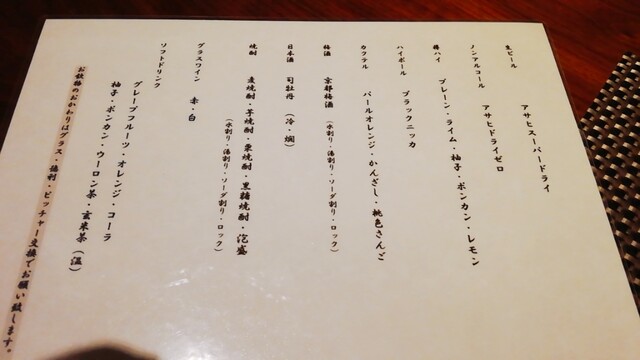 生ビール
アサヒスーパードライ
ノンアルコール
アサヒドライゼロ
酎ハイ
プレーン・ライム・柚子・ポンカン・レモン
ハイボール
ブラックニッカ
カクテル
パールオレンジ・かんざし・桃色さんご
梅酒
京都梅酒（水割り・湯割り・ソーダ割り・ロック）
日本酒
司牡丹（冷・燗）
焼酎
麦焼酎・芋焼酎・栗焼酎・黒糖焼酎・泡盛
（水割り・湯割り・ソーダ割り・ロック）
グラスワイン
赤・白
ソフトドリンク
グレープフルーツ・オレンジ・コーラ
柚子・ポンカン・ウーロン茶・玄米茶（温）
お飲物のおかわりはグラス・徳利・ピッチャー交換でお願い致します。